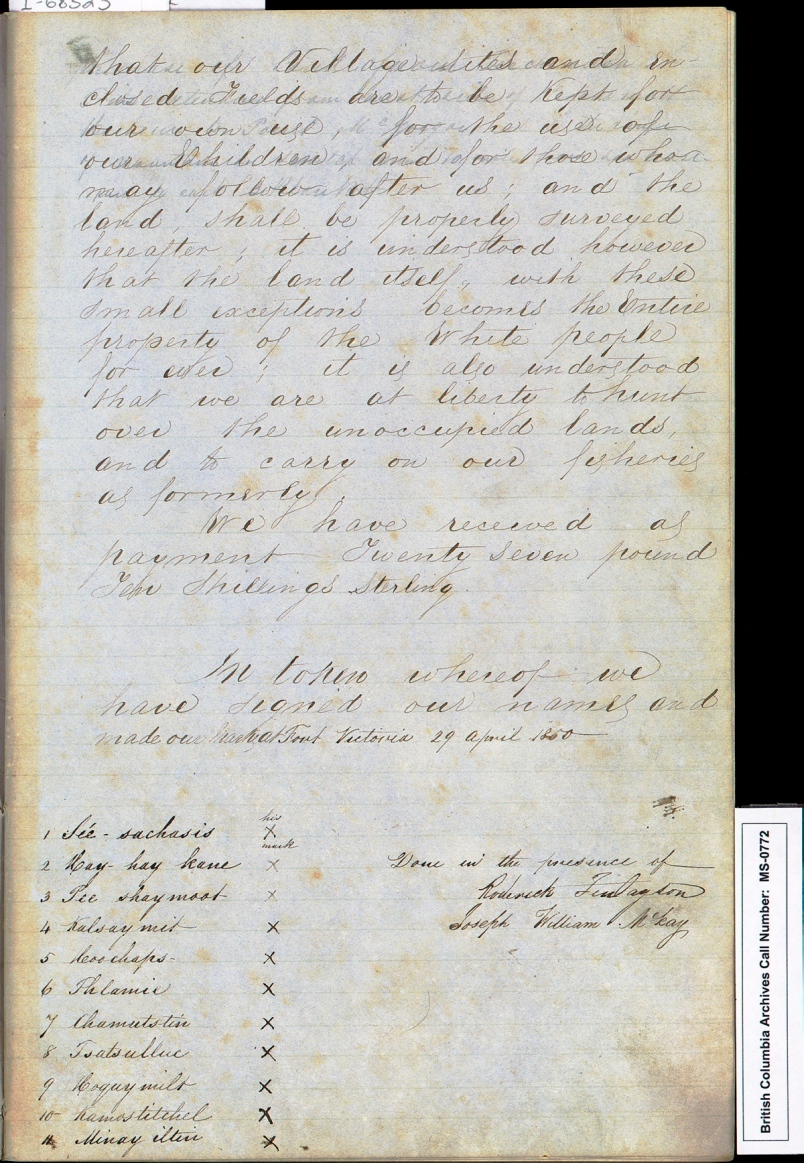 I-68525
that our Village sites and En-
closed Fields are to be Kept for
our own use, for the use of
our Children, and for those who
may follow after us; and the
land, shall be properly surveyed
hereafter; it is understood however
that the land itself, with these
small exceptions becomes the Entire
property of the White people
for ever; it is also understood
that we are at liberty to hunt
over the unoccupied lands,
and to carry on our fisheries
as formerly.
We have received as
payment Twenty Seven pound
Ten Shillings Sterling.
In token whereof we
have signed our names and
made our marks at Fort Victoria 29 April 1850
his
1 Sée-sachasis X
mark
2 Hay-hay kane X
Done in the presence of
3 Pee shaymoot X
Roderick Finlayson
4 Kalsaymit X
Joseph William McKay
5 Coochaps- X
6 Thlamie X
7 Chamutstin X
8 Tsatsulluc X
9 Hoquymilt X
10 Kamostitchel X
11 Minay iltin X
British Columbia Archives Call Number: MS-0772